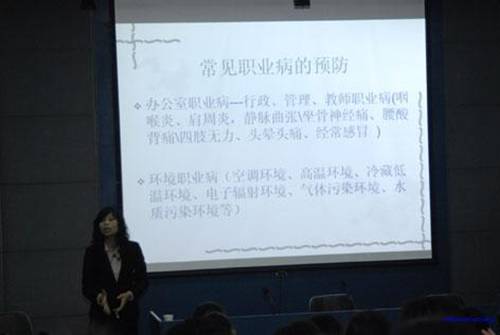 常见职业病的预防
办公室职业病—行政、管理、教师职业病(咽
喉炎、肩周炎，静脉曲张\坐骨神经痛、腰酸
背痛\四肢无力、头晕头痛、经常感冒 )
环境职业病（空调环境、高温环境、冷藏低
温环境、电子辐射环境、气体污染环境、水
质污染环境等）